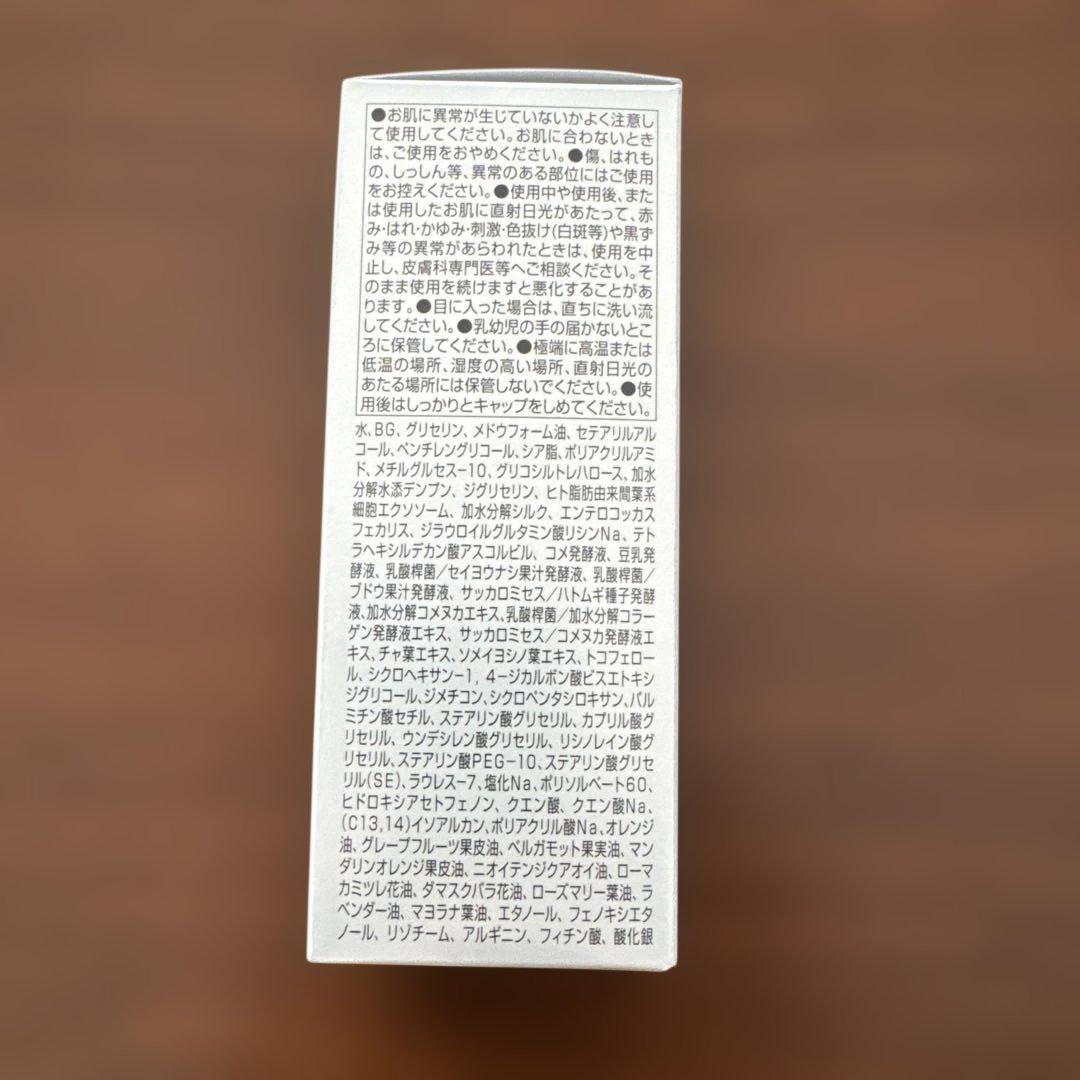 ●お肌に異常が生じていないかよく注意し
て使用してください。お肌に合わないとき
は、ご使用をおやめください。●傷、はれも
の、しっしん等、異常のある部位にはご使用
をお控えください。●使用中や使用後、また
は使用したお肌に直射日光があたって、赤
み・はれ・かゆみ・刺激・色抜け(白斑等)や黒ず
み等の異常があらわれたときは、使用を中
止し、皮膚科専門医等へご相談ください。そ
のまま使用を続けますと悪化することがあ
ります。●目に入った場合は、直ちに洗い流
してください。●乳幼児の手の届かないとこ
ろに保管してください。●極端に高温または
低温の場所、湿度の高い場所、直射日光の
あたる場所には保管しないでください。●使
用後はしっかりとキャップをしめてください。
水、BG、グリセリン、メドウフォーム油、セテアリルアル
コール、ペンチレングリコール、シア脂、ポリアクリルアミ
ド、メチルグルセス-10、グリコシルトレハロース、加水
分解水添デンプン、ジグリセリン、ヒト脂肪由来間葉系
細胞エクソソーム、加水分解シルク、エンテロコッカス
フェカリス、ジラウロイルグルタミン酸リシンNa、テト
ラヘキシルデカン酸アスコルビル、コメ発酵液、豆乳発
酵液、乳酸桿菌/セイヨウナシ果汁発酵液、乳酸桿菌/
ブドウ果汁発酵液、サッカロミセス/ハトムギ種子発酵
液、加水分解コメヌカエキス、乳酸桿菌/加水分解コラー
ゲン発酵液エキス、サッカロミセス/コメヌカ発酵液エ
キス、チャ葉エキス、ソメイヨシノ葉エキス、トコフェロー
ル、シクロヘキサン-1,4-ジカルボン酸ビスエトキシ
ジグリコール、ジメチコン、シクロペンタシロキサン、パル
ミチン酸セチル、ステアリン酸グリセリル、カプリル酸グ
リセリル、ウンデシレン酸グリセリル、リシノレイン酸グ
リセリル、ステアリン酸PEG-10、ステアリン酸グリセ
リル(SE)、ラウレス-7、塩化Na、ポリソルベート60、
ヒドロキシアセトフェノン、クエン酸、クエン酸Na、
(C13,14)イソアルカン、ポリアクリル酸Na、オレンジ
油、グレープフルーツ果皮油、ベルガモット果実油、マン
ダリンオレンジ果皮油、ニオイテンジクアオイ油、ローマ
カミツレ花油、ダマスクバラ花油、ローズマリー葉油、ラ
ベンダー油、マヨラナ葉油、エタノール、フェノキシエタ
ノール、リゾチーム、アルギニン、フィチン酸、酸化銀